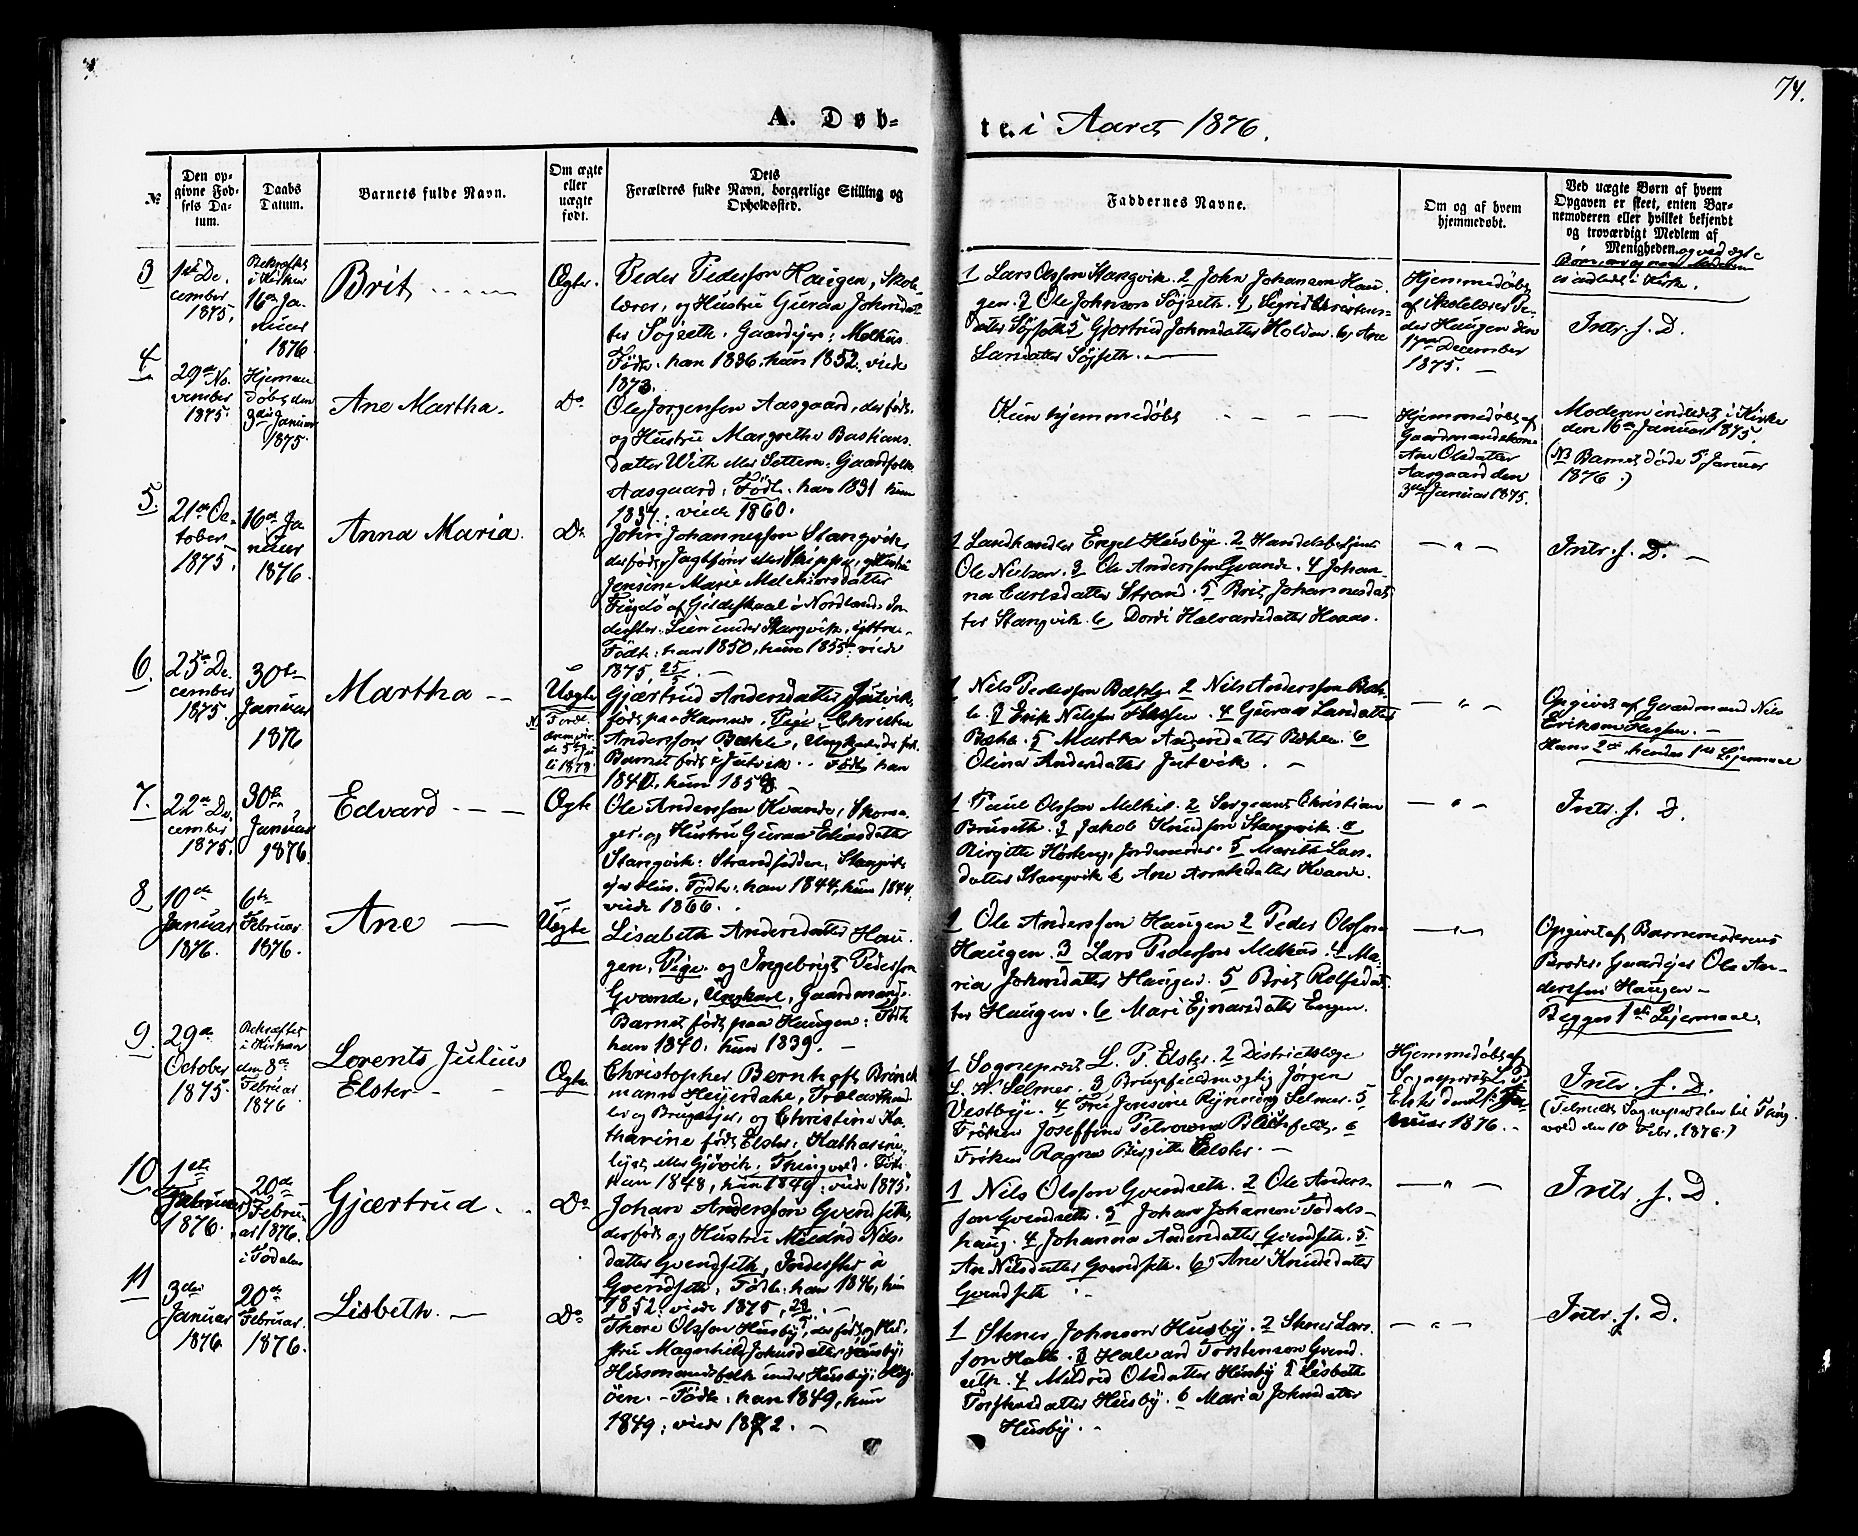 74.
A. Døb-
te. i Aaret 1876.
No
Den op-
givne Fød-
sels Da-
tum.
Daabs
Datum.
Barnets fulde Navn.
Om ægte
eller
uægte
født.
Dets
Forældres fulde Navn, borgerlige Stilling og
Opholdssted.
Faddernes Navne.
Om og af hvem
hjemmedøbt.
Ved uægte Børn af hvem
Opgaven er skeet, enten Bar-
nemoderen eller hvilket bekjendt
og troværdigt Medlem af
Menigheden. og ved ægte
Børn
indledet i Kirke.
3
1ste De-
cember
1875.
Bekræftet
i Kirken
16de Ja-
nuar
1876.
Brit
Ægte.
Peder Pedersen Haugen, Skole-
lærer, og Hustru Guraa Johnsdat-
ter Søjseth, Gaardejer: Melhus.
Født: han 1836, hun 1852, viede
1873.
1 Lars Olsson Stangvik. 2 John Johansen Hau-
gen. 3 Ole Johnsen Søjseth. 4 Sigrid Christens-
datter Søjseth. 5 Gjertrud Johnsdatter Holden. 6, Ane
Larsdatter Søjseth.
Hjemmedøbt
af Skolelærer Pe-
der Haugen den
17de December
1875.
Intr. f. D.
4.
29de No-
vember
1875.
Hjemme
døbt den
3die Januar
1875.
Ane Martha.
Do
Ole Jørgensen Aasgaard, der født,
og Hustru Margrethe Bastians-
datter With eller Settem: Gaardfolk
Aasgaard. Født: han 1831 hun
1837: viede 1860.
Kun hjemmedøbt
Hjemmedøbt af
Gaardmandskone
Ane Olsdatter
Aasgaard den
3die Januar 1875.
Moderen indledet i Kirke
den 16de Januar 1875.
(NB Barnet døde 5 Januar
1876.)
5.
21de Oc-
tober
1875.
16de Ja-
nuar
1876.
Anna Maria.
Do
John Johannesson Stangvik
derfødt, Jagtfører eller Skipper, og Hustru
Jensine Marie Melchiorsdatter
Fugelø af Gildeskaal i Nordland, In-
derster: Lien under Stangvik,
Født: han 1850, hun 1855: viede
1875, 25/5.
1 Landhandler Engel Husbye. 2 Handelsbetjent
Ole Nielsen. 3 Ole Andersson Qvande. 4 Johan-
na Carlsdatter Strand. 5 Brit Johannesdat-
ter Stangvik. 6 Dordi Halvardsdatter Hvaas.
Intr. f. D.
6.
25de De-
cember
1875.
30te
Januar
1876
Martha
Uægte
Gjærtrud Andersdatter Jutvik,
født paa Hamnes, Pige. Christen
Andersson Bækle, Ungkarl, der født.
Barnet født i Jutvik. Født: han
184, hun 1858.
1 Nils Pedersson Bækle. 2 Nils Andersson Bæk-
le. 3 Erik Nilsson Flessen. 4 Guraa Larsdatter
Bækle. 5 Martha Andersdatter Bækle. 6
Olina Andersdatter Jutvik.
Opgivet af Gaardmand Nils
Eriksson Flessen.
Hans 2det hendes 1ste Lejermaal
7.
22de De-
cember
1875.
30te
Januar
1876.
Edvard
Ægte
Ole Andersson Kvande, Skoma-
ger, og Hustru Guraa Eliasdatter
Stangvik: Strandsidder, Stangvik
ejer Hus. Født: han 1844, hun 1844.
viede 1866.
1 Paul Olsson Melhus. 2 Sergeant Christian
Bruseth. 3 Jakob Knudson Stangvik. 4
Birgitte Høsteng, Jordemoder. 5 Marith Lars-
datter Stangvik 6 Ane Arntsdatter Kvande.
Intr. f. D.
8
10de
Januar
1876.
6te
Februar
1876.
Ane
Uægte
Lisabeth Andersdatter Hau-
gen, Pige. og Ingebrigt Pedersson
Qvande, Ungkarl, Gaardmand.
Barnet født paa Haugen: Født
han 1840. hun 1839.
1 Ole Andersson Haugen 2 Peder Olsson
Haugen. 3 Lars Pedersson Melhus. 4 Ma-
ria Johnsdatter Haugen. 5 Brit Rolfsdat-
ter Haugen. 6 Mari Ejnarsdatter Engen.
Opgivet af Barnemoderens
Broder, Gaardejer Ole An-
derssen Haugen
Begges 1ste Lejermaal.
9.
29de
October
1875.
Bekræftet
i Kirken
den 8de
Februar
1876
Lorents Julius
Elster
Ægte
Christopher Bernhoft Brinck-
mann Heyerdahl, Trælasthand-
ler og Brugsejer, og Christine Ka-
tharine født Elster: Katharine-
lyst eller Gjøvik, Thingvold. Født
han 1848, hun 1849: viede 1875.
1 Sogneprest L. P. Elster. 2 Districtslæge
L. W. Selmer. 3 Brugsfuldmægtig Jørgen
Vestbye. 4 Fru Jonsine Rynning Selmer. 5
Frøken Josefine Petrowna Blichfeldt. 6
Frøken Ragna Birgitte Elster.
Hjemmedøbt af
Sogneprest L. P.
Elster den 2 Ja-
nuar 1876.
Intr. f. D.
(Tilmeldt Sognepresten til Thing-
vold den 10 Febr. 1876.)
10.
1ste
Februar
1876.
20de
Febru-
ar 1876.
i Todalen
Gjærtrud.
Do
Johan Andersson Qvendseth,
derfødt og Hustru Mildrid Nils-
datter Qvendseth, Inderster i
Qvendseth. Født: han 1846, hun
1852: viede 1875, 28/.
1 Nils Olsson Qvendseth. 2 Ole Anders-
son Qvendseth. 3 Johan Johansen Todals-
haug. 4 Johanna Andersdatter Qvendseth. 5
An Nilsdatter Qvendseth. 6, Ane Knudsdatter
Qvendseth
Intr. f. D.
11
3die
Januar
1876.
20de
Februar
1876.
Lisbeth.
Do
Thore Olsson Husby, der født, og Hus-
tru Magnhild Johnsdatter Husby,
Husmandsfolk under Husby: Meg-
øien. Født: han 1849, hun
1849: viede 1872.
1 Stener Johnson Husby. 2 Stener Lars-
son Halle. 3 Halvard Torstenson Qvend-
seth. 4 Mildrid Olsdatter Husby 5 Lisbeth
Torstensdatter Husby. 6 Maria Johnsdatter
Husby.
Intr. f. D.